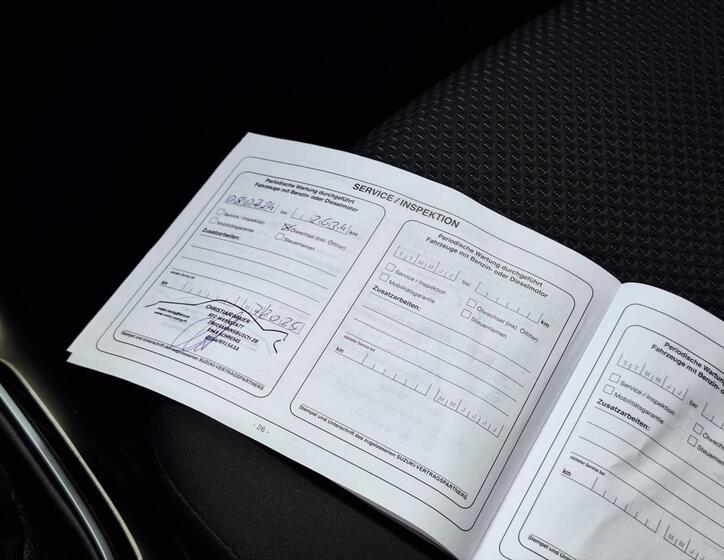 SERVICE / INSPEKTION
Periodische Wartung durchgeführt
Fahrzeuge mit Benzin- oder Dieselmotor
080724 bei 2634 km
Service / Inspektion
Ölwechsel (inkl. Ölfilter)
Mobilitätsgarantie
Steuerriemen
Zusatzarbeiten:
nächster Service bei
KFZ WERKSTATT
Stempel und Unterschrift des zugelassenen SUZUKI-VERTRAGSPARTNERS
Periodische Wartung durchgeführt
Fahrzeuge mit Benzin- oder Dieselmotor
T T M M J J bei km
Service / Inspektion
Ölwechsel (inkl. Ölfilter)
Mobilitätsgarantie
Steuerriemen
Zusatzarbeiten:
nächster Service bei
km M M J J J J
Stempel und Unterschrift des zugelassenen SUZUKI-VERTRAGSPARTNERS
- 26 -
Periodische Wartung
Fahrzeuge mit Benzin-
T T M M J J bei
Service / Inspektion
Mobilitätsgarantie
Zusatzarbeiten:
nächster Service bei
km M M J J
Stempel und Unterschrift des